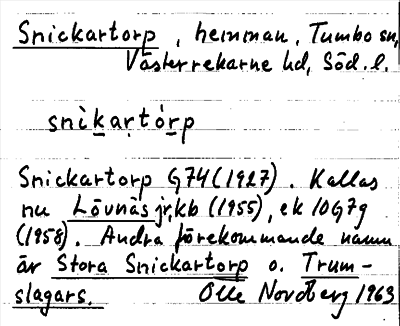 Snickartorp, hemman, Tumbo sn,
Västerrekarne hd, Söd. l.
snìkạṛtórp
Snickartorp G74 (1927). Kallas
nu Lövnäs jr,kb (1955), ek 10G7g
(1958). Andra förekommande namn
är Stora Snickartorp o. Trum-
slagars. Olle Nordberg 1963